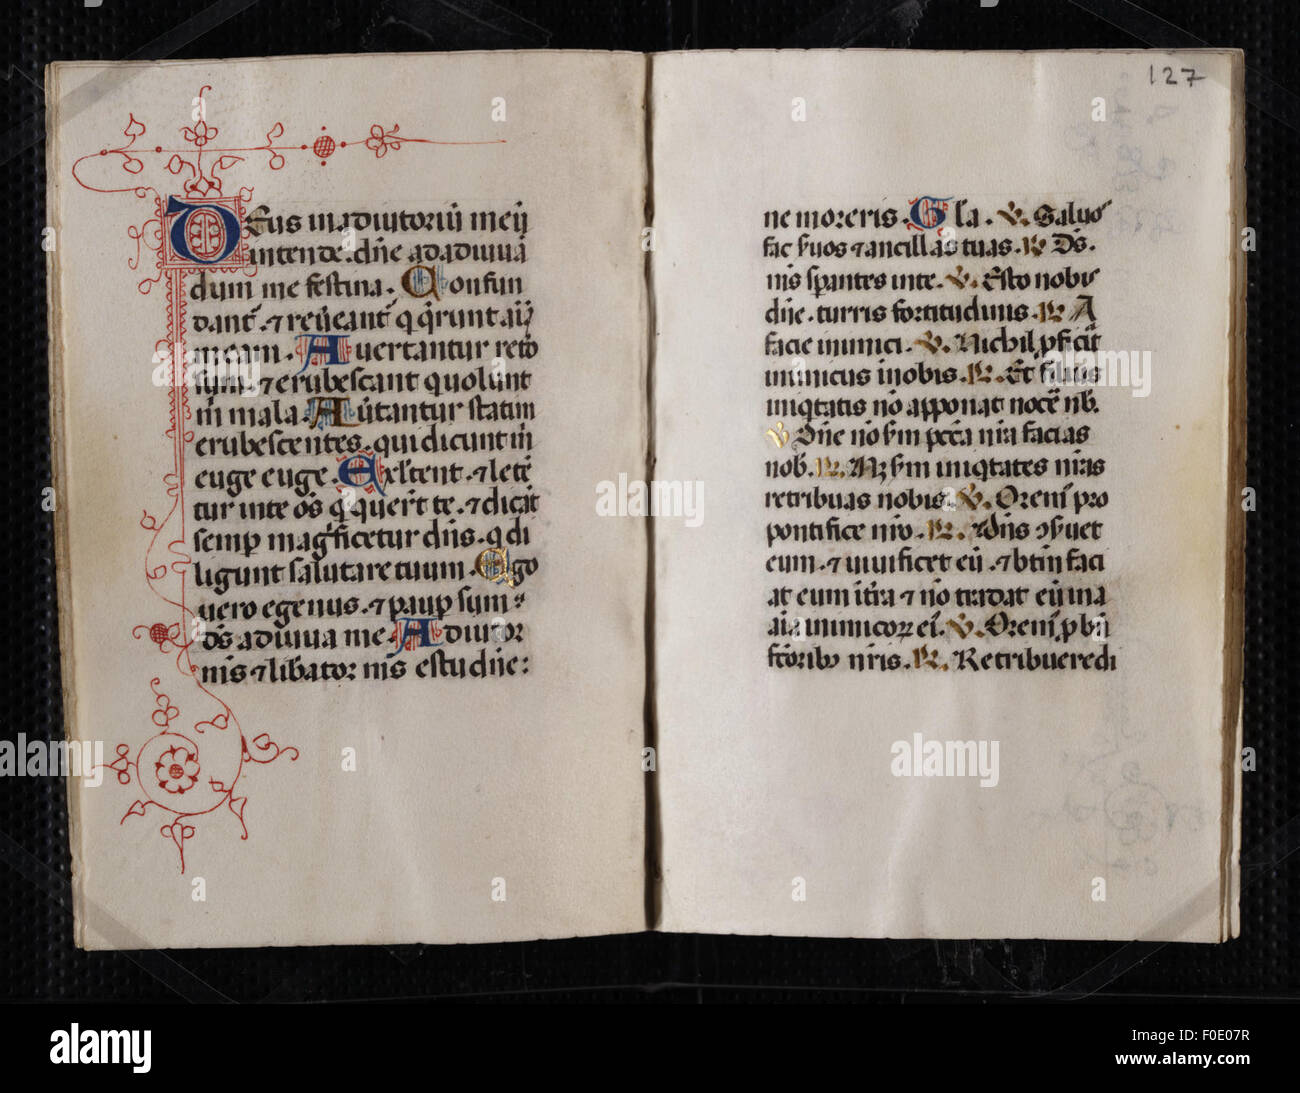 DEus in adiutoriũ meũ
intende. dñe ad adiuuã
dum me festina. Confun
dant̃. ⁊ reũeant̃ q q̃runt aĩaʒ
meam. Auertantur retro
sum. ⁊ erubescant q uolunt
m̃ mala. Aũtantur statim
erubescentes. qui dicunt m̃
euge euge. Exl̃tent. ⁊ letẽ
tur in te õs q querũt te. ⁊ dicãt
semp̃ mag̃ficetur dñs. q di
ligunt salutare tuum. Ego
uero egenus. ⁊ paup̃ sum.
dš adiuua me. Adiutor
m̃s ⁊ libator m̃s es tu dñe:
127
ne moreris. Gl̃a. ℣. Saluos
fac ŝuos ⁊ ancillas tuas. ℟ Ds.
m̃s sp̃antes in te. ℣. Esto nobis
dñe. turris fortitudinis. ℟ A
facie inimici. ℣. Nichil p̃ficiãt
inimicus in obis. ℟. Et filius
iniq̃tatis nõ apponat nocẽ nb̃.
℣ Dñe nõ ŝm pctã nr̃a facias
nob̃. ℟. Neqʒ ŝm iniq̃tates nr̃as
retribuas nobis. ℣. Orem̃ pro
pontifice nr̃o. ℟. Dñs ↄŝuet
eum. ⁊ uiuificet eũ. ⁊ btm̃ faci
at eum ĩ tr̃a ⁊ nõ tradat eũ in a
aĩa inimicoꝝ ei. ℣. Orem̃ p bñ
fc̃toribʒ nr̃is. ℟. Retribuere di
alamy
alamy
Image ID: F0E07R
www.alamy.com